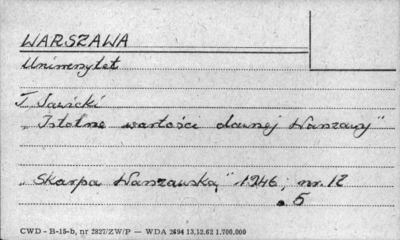 WARSZAWA
Uniwersytet
T. Sawicki
„Istotne wartości dawnej Warszawy"
„Skarpa Warszawska" 1946, nr. 12
s. 5
CWD - B-15-b, nr 2827/ZW/P — WDA 2694 13.12.62 1.700.000